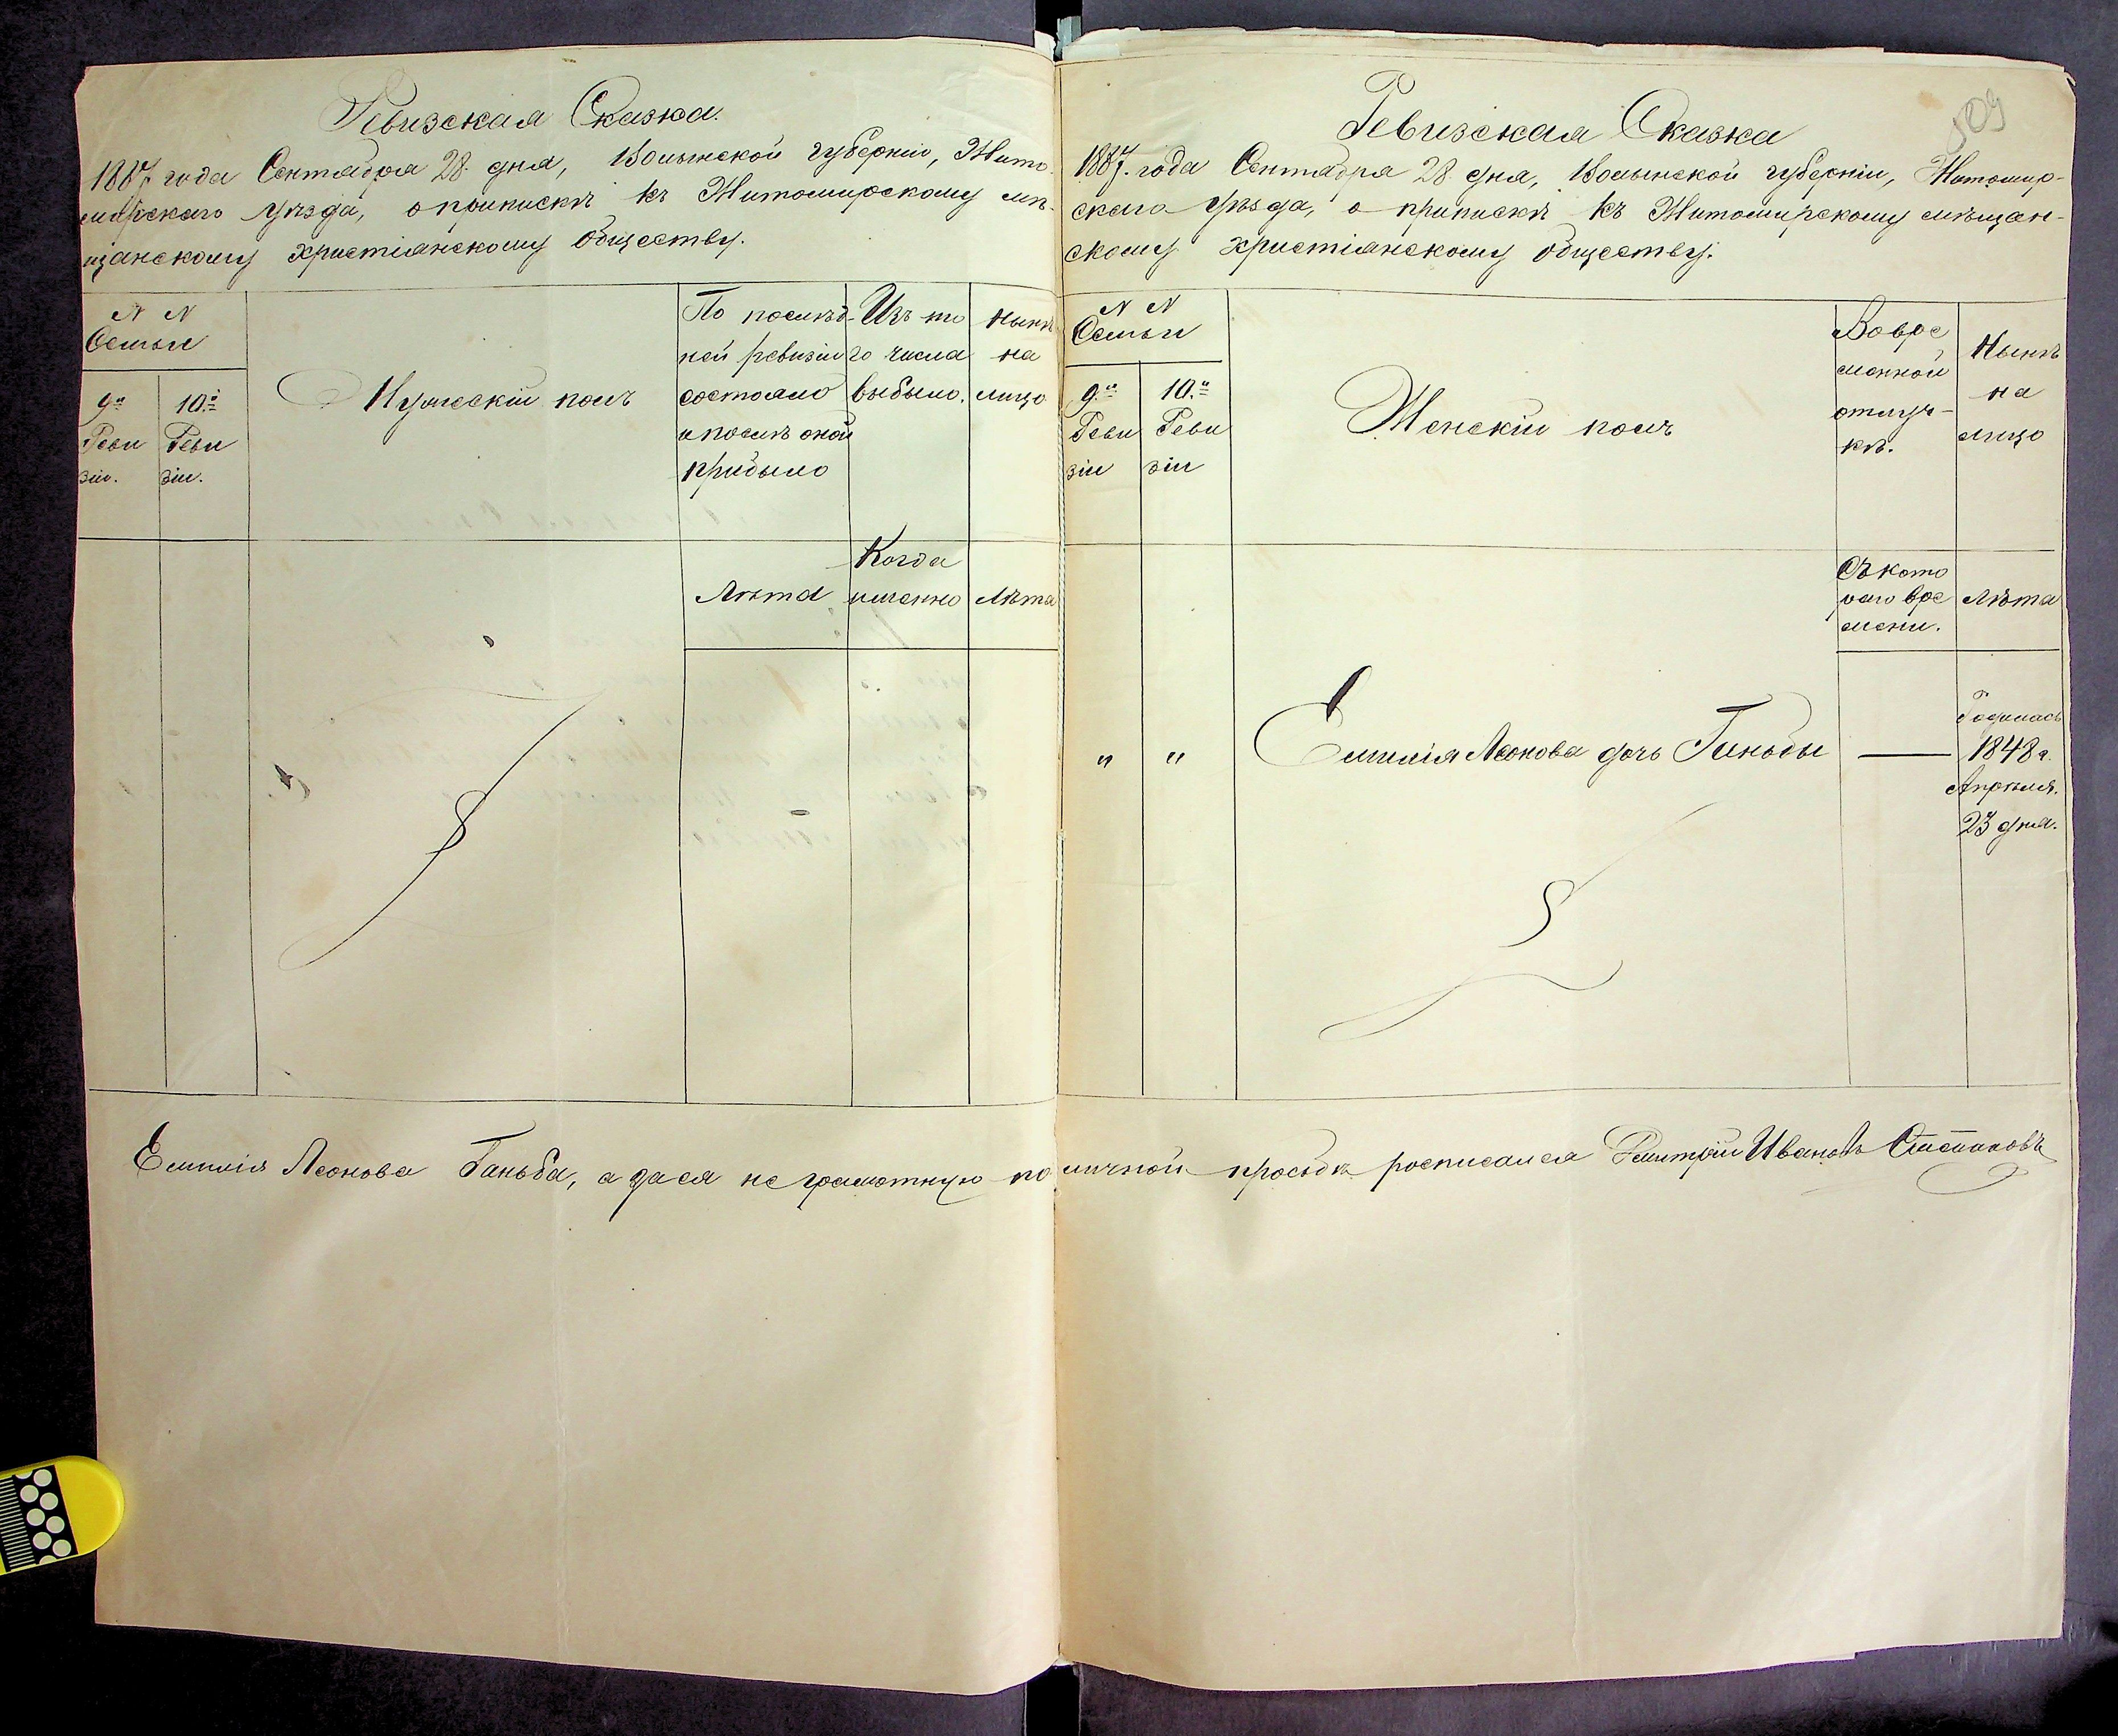 Ревизская Сказка.
1887 года Сентября 28 дня, Волынской губерніи, Жито
мирскаго уѣзда, о припискѣ къ Житомирскому мѣ-
щанскому христіанскому обществу.
N N
Семьи
9я
Реви
зіи.
10я
Реви
зіи.
Мужескій полъ
По послѣд-
ней ревизіи
состояло
и послѣ оной
прибыло
Изъ то
го числа
выбыло.
Нынѣ
на
лицо
Лѣта
Когда
именно
Лѣта
509
Ревизская Сказка
1887. года Сентября 28 дня, Волынской губерніи, Житомир-
скаго уѣзда, о припискѣ къ Житомирскому мѣщан-
скому христіанскому обществу.
N N
Семьи
9.я
Реви
зіи
10.я
Реви
зіи
Женскій полъ
Во вре
менной
отлуч-
кѣ.
Нынѣ
на
лицо
Съ кото
раго вре
мени.
Лѣта
" " Емилія Леонова дочь Ганьбы —
Родилась
1848 г.
Апрѣля.
23 дня.
Емилія Леонова Ганьба, а за ея неграмотную по личной просьбѣ росписался Дмитрій Ивановъ